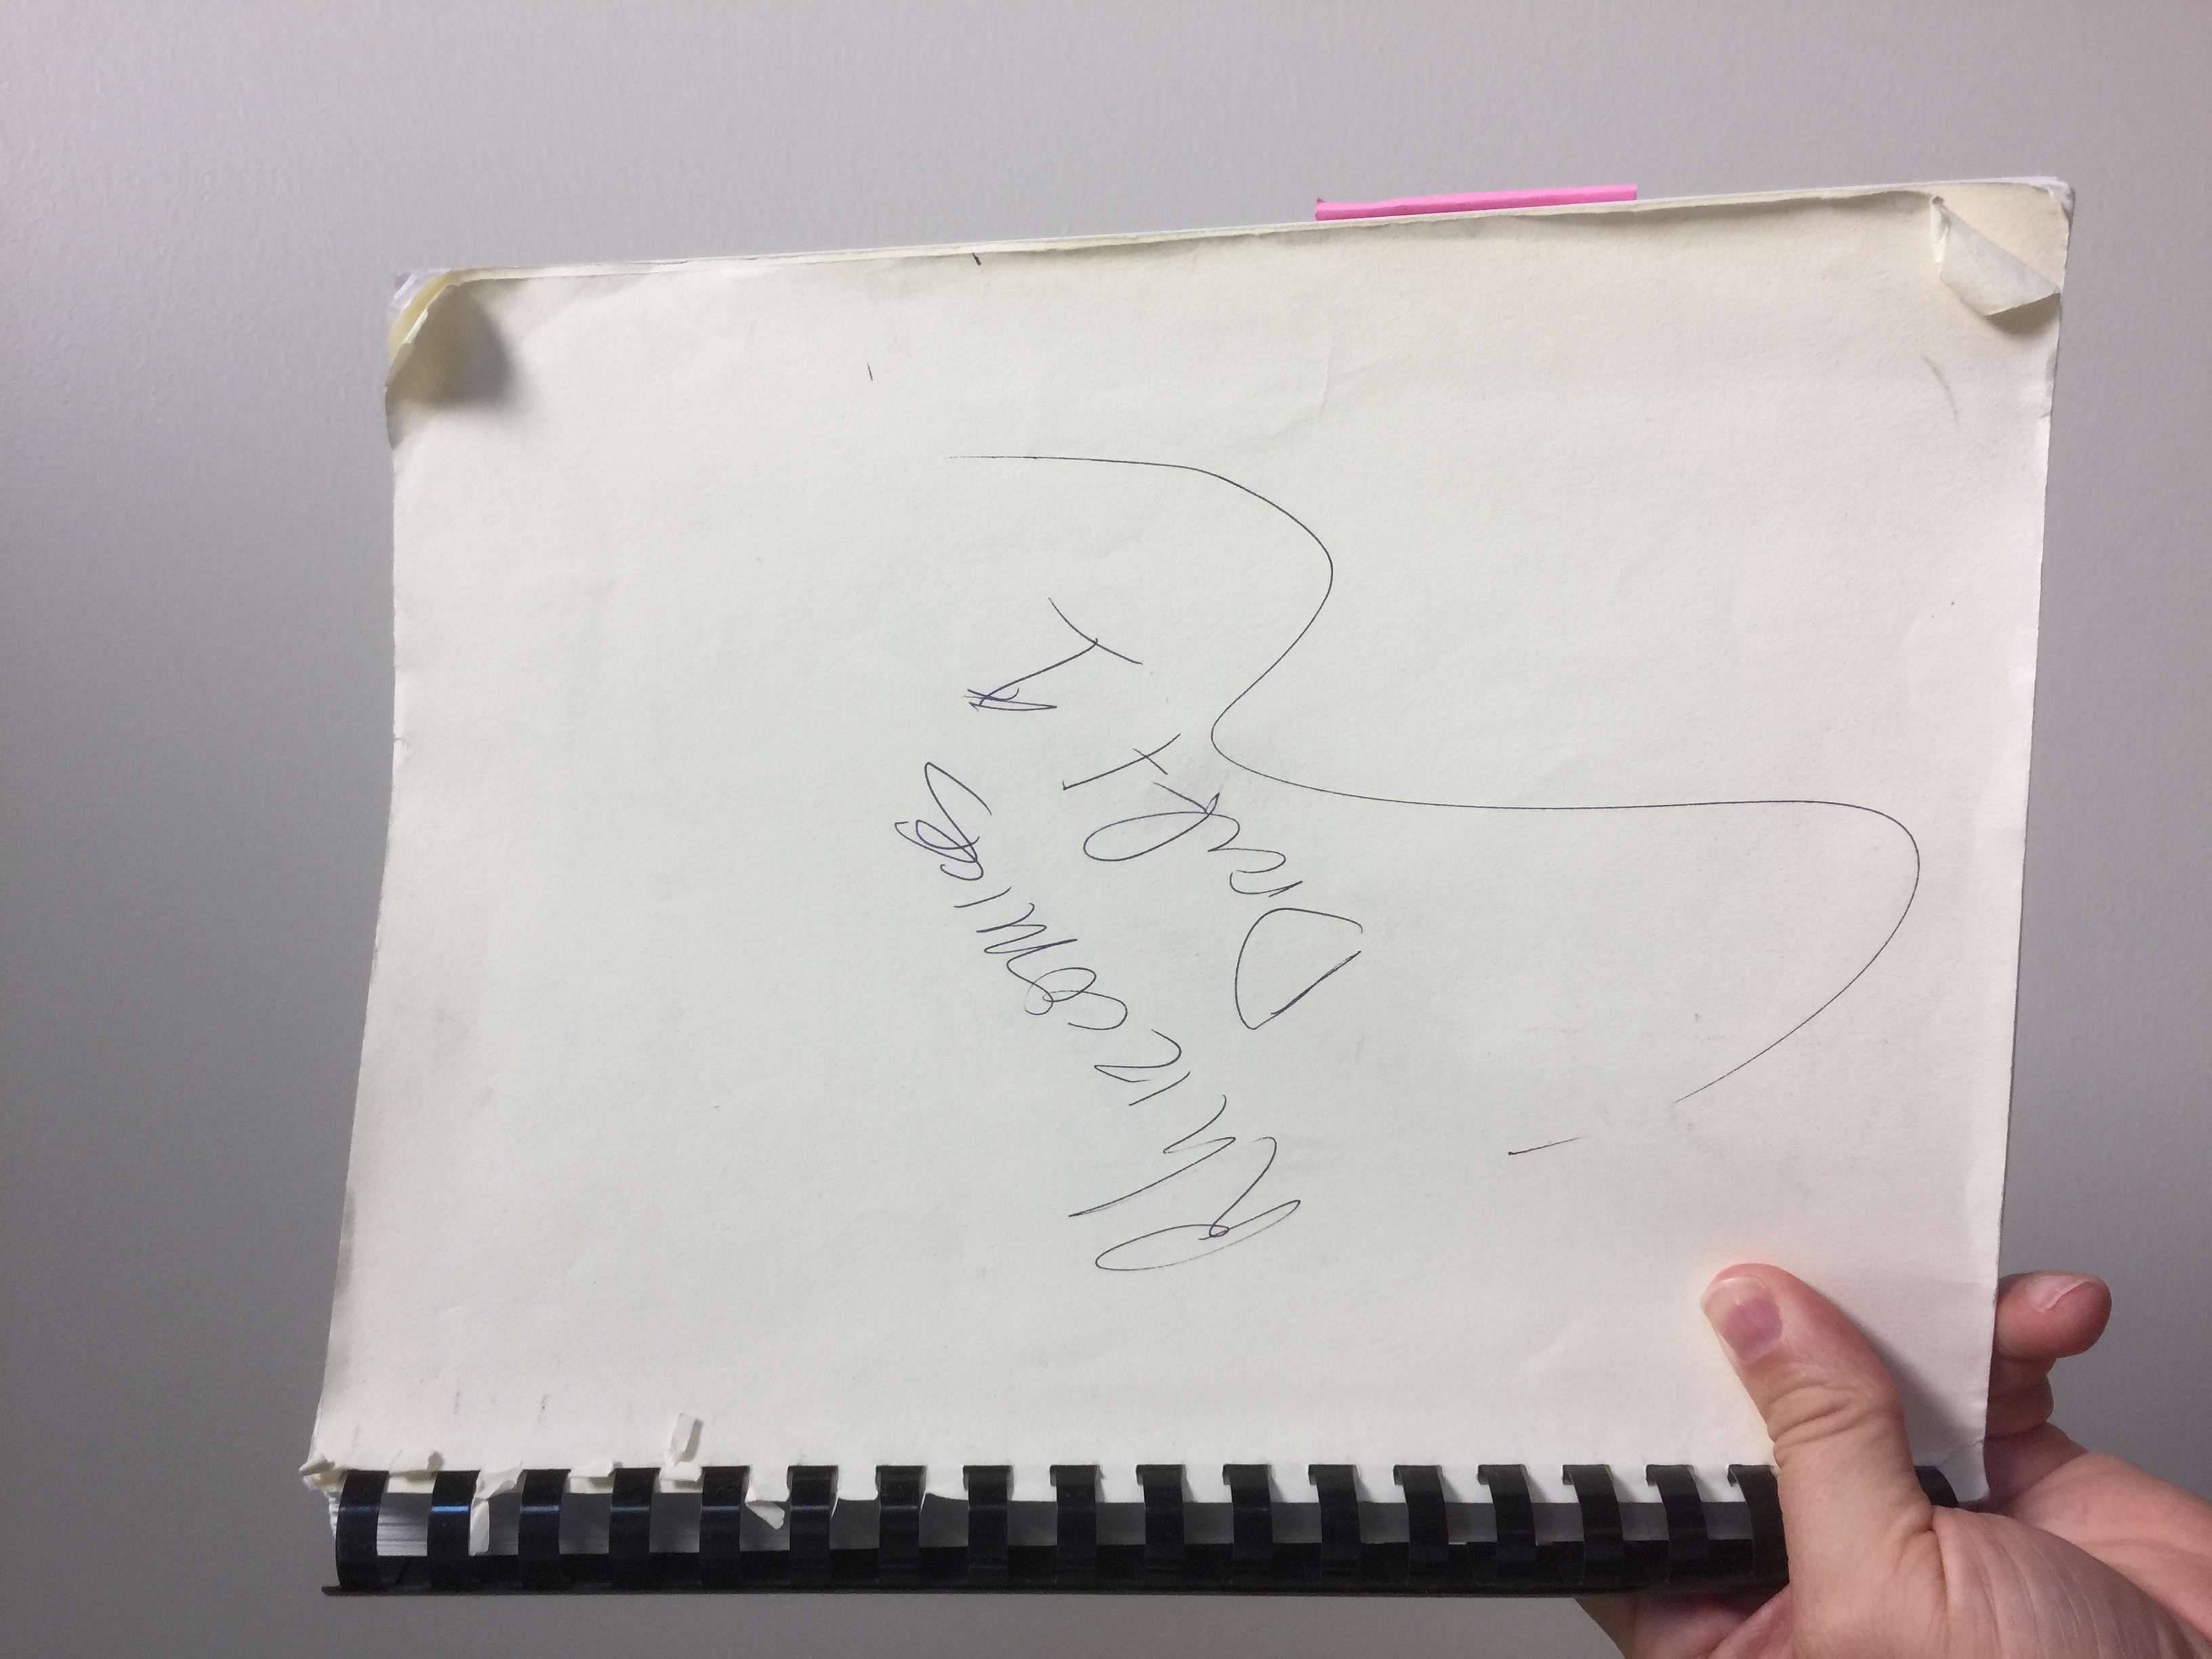 Rhizcomics
Draft 1